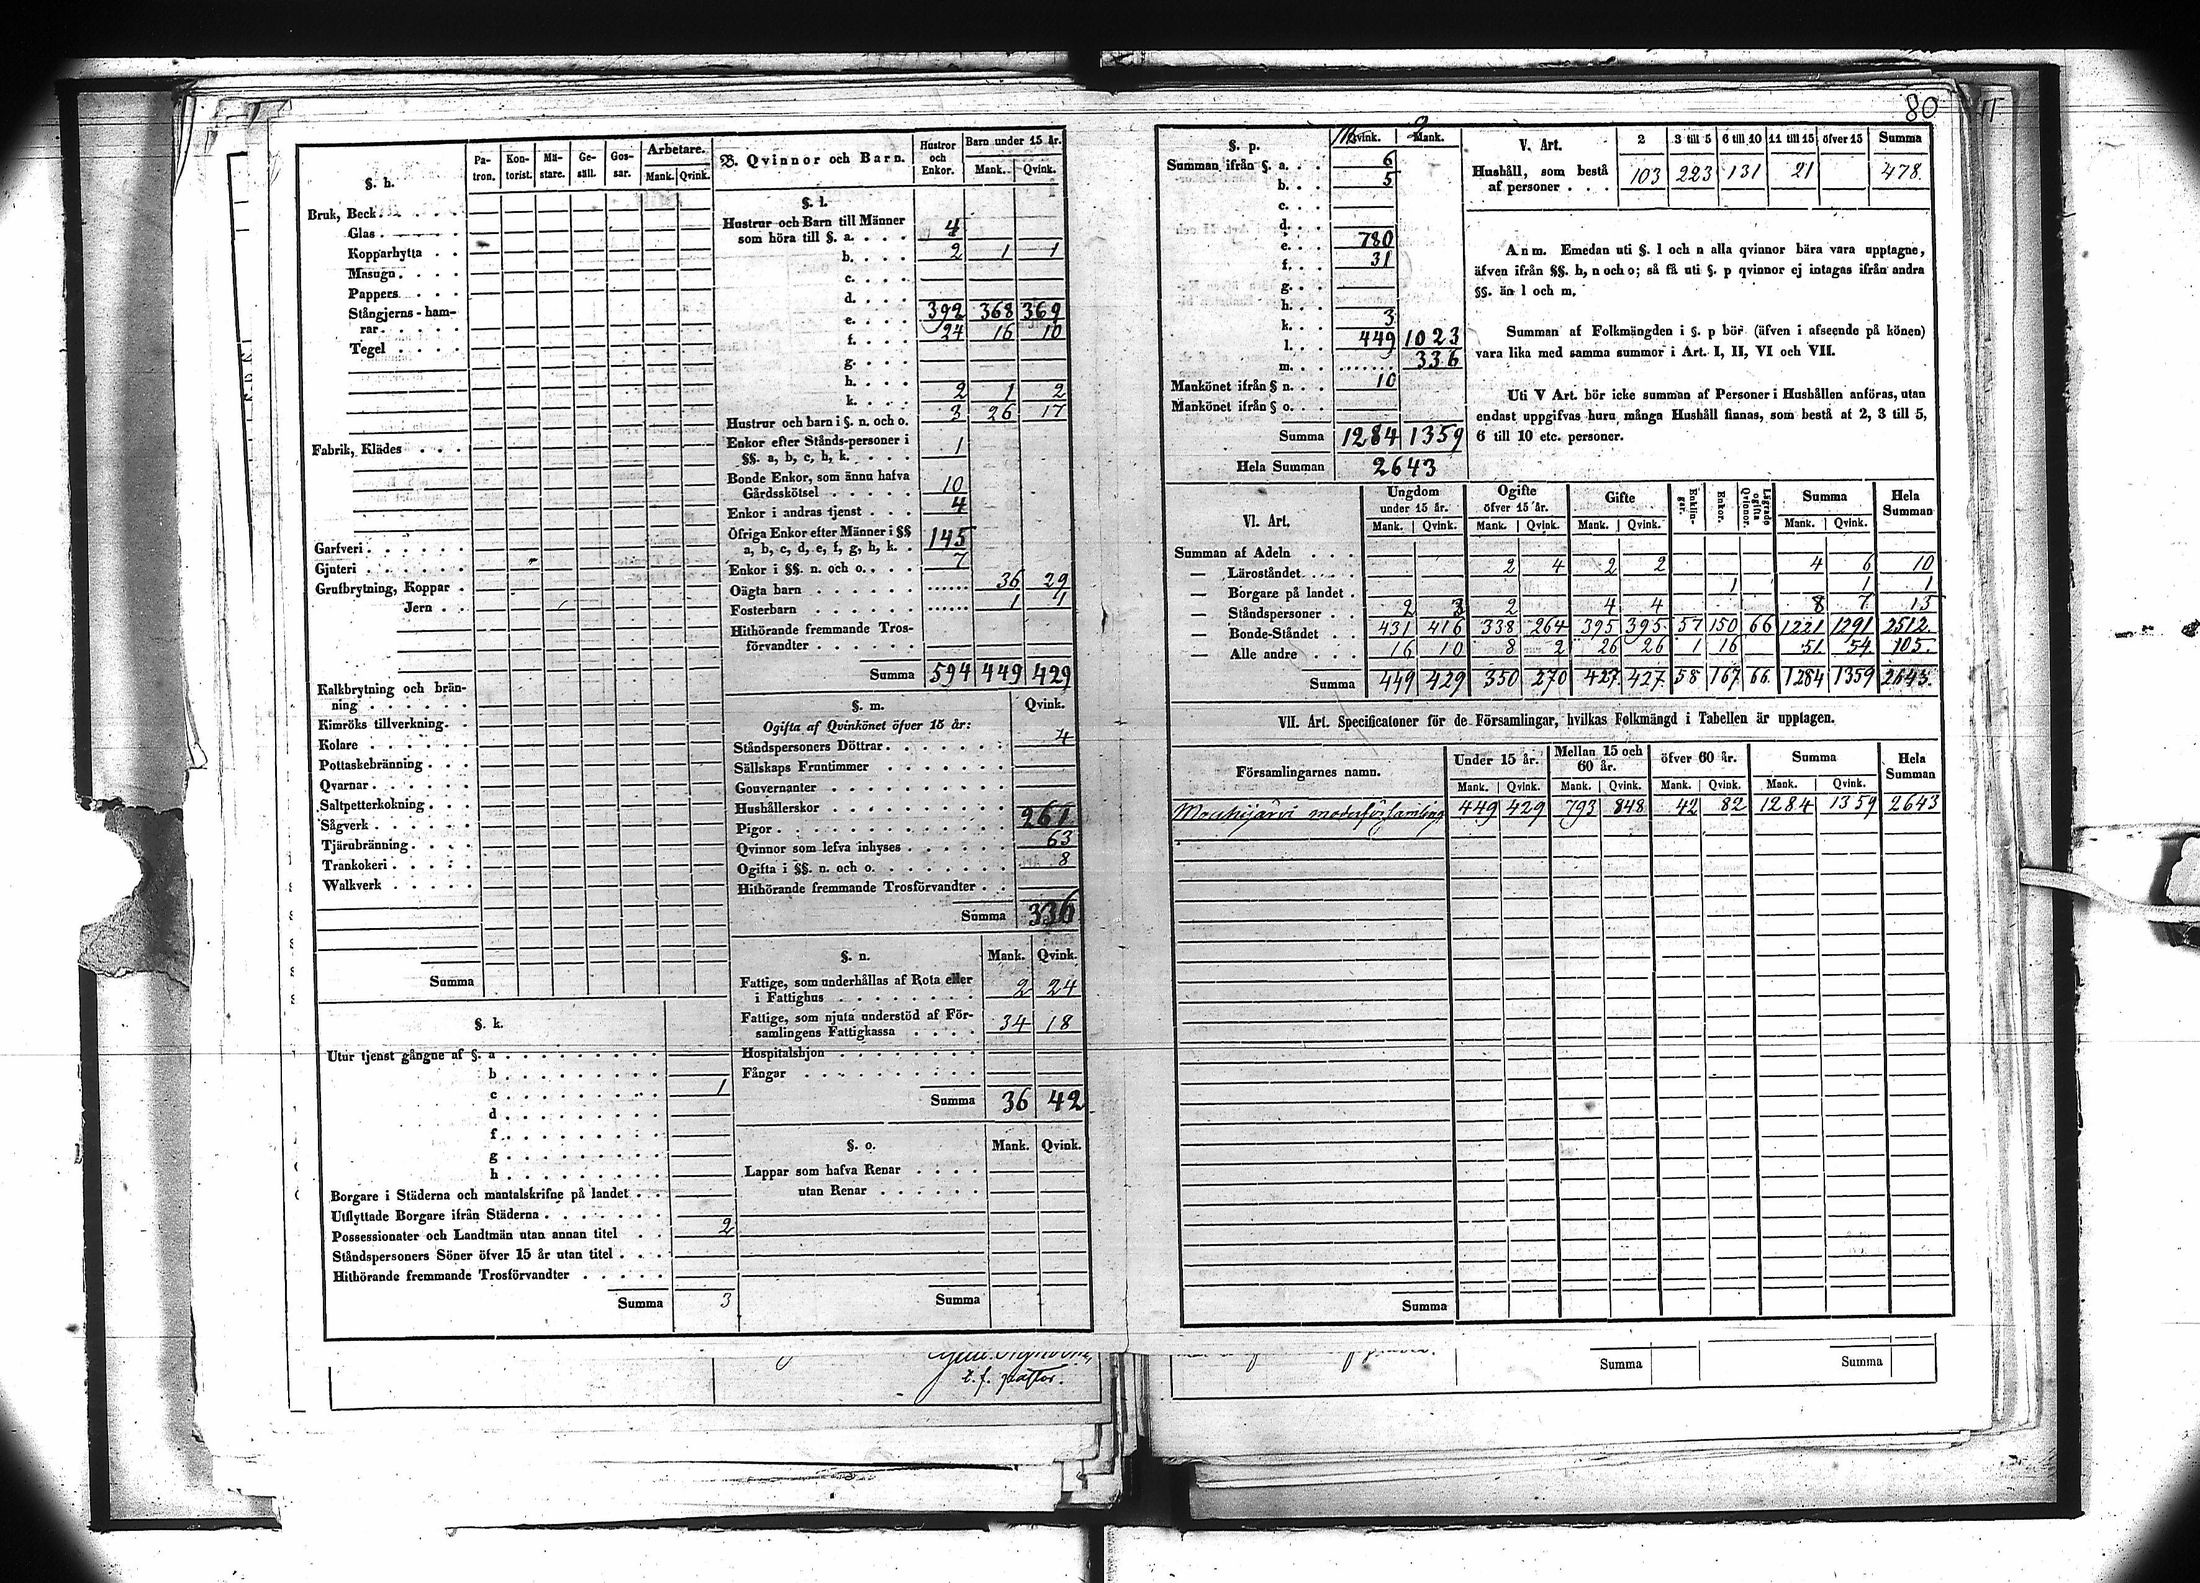 80
§. h.
Pa-tron. Kon-torist. Mä-stare. Ge-säll. Gos-sar. Arbetare. Mank. Qvink.
Bruk, Beck
Glas
Kopparhytta
Masugn
Pappers
Stångjerns-ham-
rar
Tegel
Fabrik, Klädes
Garfveri
Gjuteri
Grufbrytning, Koppar
Jern
Kalkbrytning och brän-
ning
Kimröks tillverkning
Kolare
Pottaskebränning
Qvarnar
Saltpetterkokning
Sågverk
Tjärubränning
Trankokeri
Walkverk
Summa
§. k.
Utur tjenst gångne af §. a
b
c 1
d
f
g
h
Borgare i Städerna och mantalskrifne på landet
Utflyttade Borgare ifrån Städerna
Possessionater och Landtmän utan annan titel 2
Ståndspersoners Söner öfver 15 år utan titel
Hithörande fremmande Trosförvandter
Summa 3
B. Qvinnor och Barn. Hustror och Enkor. Barn under 15 år. Mank. Qvink.
§. l.
Hustrur och Barn till Männer
som höra till §. a. 4
b. 2 1 1
c.
d.
e. 392 368 369
f. 24 16 10
g.
h.
k. 2 1 2
Hustrur och barn i §. n. och o. 3 26 17
Enkor efter Stånds-personer i
§§. a, b, c, h, k. 1
Bonde Enkor, som ännu hafva
Gårdsskötsel 10
Enkor i andras tjenst 4
Öfriga Enkor efter Männer i §§
a, b, c, d, e, f, g, h, k. 145
Enkor i §§. n. och o. 7
Oägta barn 36 29
Fosterbarn 1 1
Hithörande fremmande Tros-
förvandter
Summa 594 449 429
§. m. Qvink.
Ogifta af Qvinkönet öfver 15 år:
Ståndspersoners Döttrar 4
Sällskaps Fruntimmer
Gouvernanter
Hushållerskor
Pigor 261
Qvinnor som lefva inhyses 63
Ogifta i §§. n. och o. 8
Hithörande fremmande Trosförvandter
Summa 336
§. n. Mank. Qvink.
Fattige, som underhållas af Rota eller
i Fattighus 2 24
Fattige, som njuta understöd af För-
samlingens Fattigkassa 34 18
Hospitalshjon
Fångar
Summa 36 42
§. o. Mank. Qvink.
Lappar som hafva Renar
utan Renar
Summa
§. p. Qvink. Mank.
Summan ifrån §. a. 6
b. 5
c.
d.
e. 780
f. 31
g.
h.
k. 3
l. 449 1023
m. 336
Mankönet ifrån § n. 10
Mankönet ifrån § o.
Summa 1284 1359
Hela Summan 2643
V. Art. 2 3 till 5 6 till 10 11 till 15 öfver 15 Summa
Hushåll, som bestå
af personer 103 223 131 21 478.
Anm. Emedan uti §. l och n alla qvinnor bära vara upptagne,
äfven ifrån §§. h, n och o; så få uti §. p qvinnor ej intagas ifrån andra
§§. än l och m.
Summan af Folkmängden i §. p bör (äfven i afseende på könen)
vara lika med samma summor i Art. I, II, VI och VII.
Uti V Art. bör icke summan af Personer i Hushållen anföras, utan
endast uppgifvas huru många Hushåll finnas, som bestå af 2, 3 till 5,
6 till 10 etc. personer.
VI. Art. Ungdom under 15 år. Ogifte öfver 15 år. Gifte Enklin-gar. Enkor. Lägrade ogifta Qvinnor. Summa Hela Summan
Mank. Qvink. Mank. Qvink. Mank. Qvink. Mank. Qvink.
Summan af Adeln
— Läroståndet 2 4 2 2 4 6 10
— Borgare på landet 1 1 1
— Ståndspersoner 2 3 2 4 4 8 7 15
— Bonde-Ståndet 431 416 338 264 395 395 57 150 66 1221 1291 2512.
— Alle andre 16 10 8 2 26 26 1 16 51 54 105.
Summa 449 429 350 270 427 427 58 167 66 1284 1359 2643.
VII. Art. Specificatoner för de Församlingar, hvilkas Folkmängd i Tabellen är upptagen.
Församlingarnes namn. Under 15 år. Mellan 15 och 60 år. öfver 60 år. Summa Hela Summan
Mank. Qvink. Mank. Qvink. Mank. Qvink. Mank. Qvink.
Mouhijärvi moderförsamling 449 429 793 848 42 82 1284 1359 2643
Summa
t. f. pastor.
Summa Summa